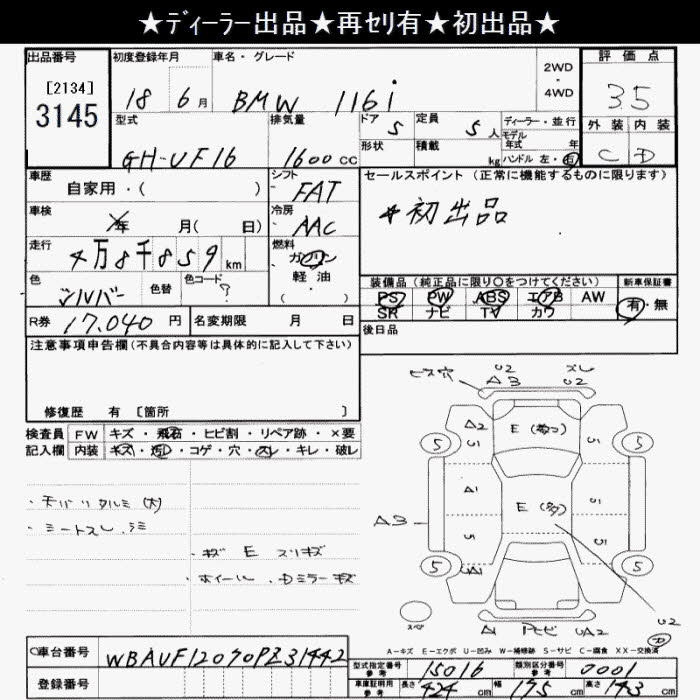 ★ディーラー出品★再セリ有★初出品★
出品番号
[2134]
3145
初度登録年月
18 6月
車名・グレード
BMW 116i
2WD
・
4WD
評価点
3.5
外装 内装
C D
型式
GH-UF16
排気量
1600cc
ドア 5
形状
定員 5人
積載 kg
ディーラー・並行
モデル
年式 年
ハンドル 左・右
車歴
自家用・( )
シフト
FAT
車検
年 月( 日)
冷房
AAC
走行
4万8千859km
燃料
ガソリン
軽・油
・
( )
色
シルバー
色替
色コード
?
R券 17,040円
名変期限 月 日
セールスポイント(正常に機能するものに限ります)
*初出品
装備品(純正品に限り○をつけてください)
PS PW ABS エアB AW
SR ナビ TV カワ
新車保証書
有・無
後日品
注意事項申告欄(不具合内容等は具体的に記入して下さい)
修復歴 有 [箇所 ]
検査員 FW キズ・飛石・ヒビ割・リペア跡・×要
記入欄 内装 キズ・汚レ・コゲ・穴・スレ・キレ・破レ
・天バリタルミ(大)
・シートスレ、シミ
・キズ E スリキズ
・ホイール、Dミラーキズ
ビス穴 A3 U2 スレ U2
A2 E
5 5
A1 E(多)
A3
5 5
A1
スペア
A1 U2
UA2
A-キズ E-エクボ U-凹み W-補修跡 S-サビ C-腐食 XX-交換済
車台番号
WBAUF12070PZ31442
登録番号
型式指定番号
参考
15016
類別区分番号
参考
0001
車庫証明用
参考
長さ 424cm 幅 175cm 高さ 143cm